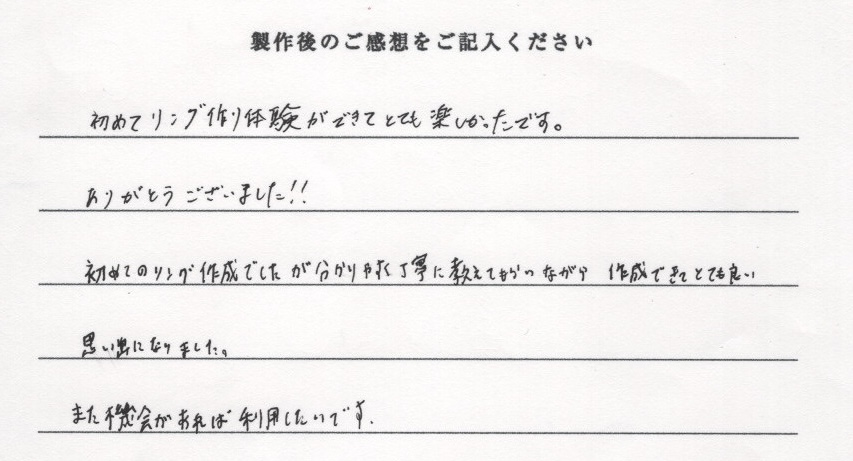 製作後のご感想をご記入ください
初めてリング作り体験ができてとても楽しかったです。
ありがとうございました!!
初めてのリング作成でしたが分かりやすく丁寧に教えてもらいながら 作成できてとても良い
思い出になりました。
また機会があれば利用したいです.